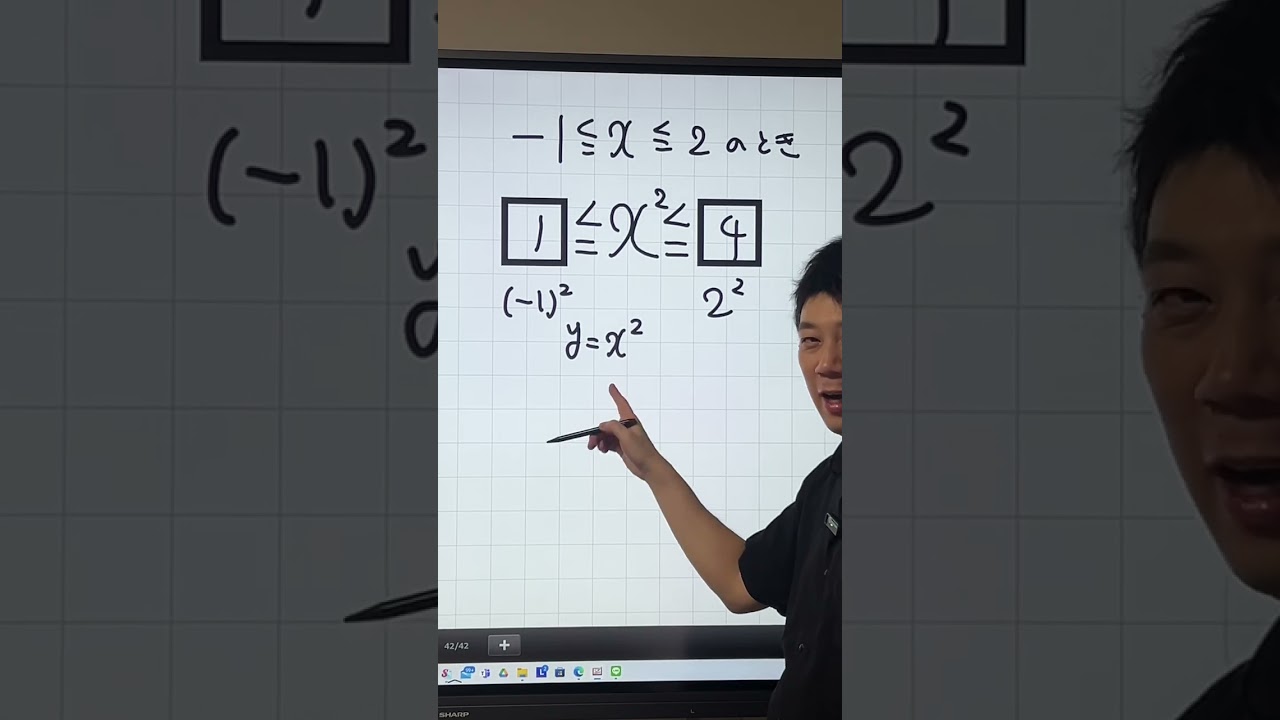 -1 ≦ x ≦ 2 のとき
1 ≦ x² ≦ 4
(-1)² 2²
y = x²
42/42 +
SHARP